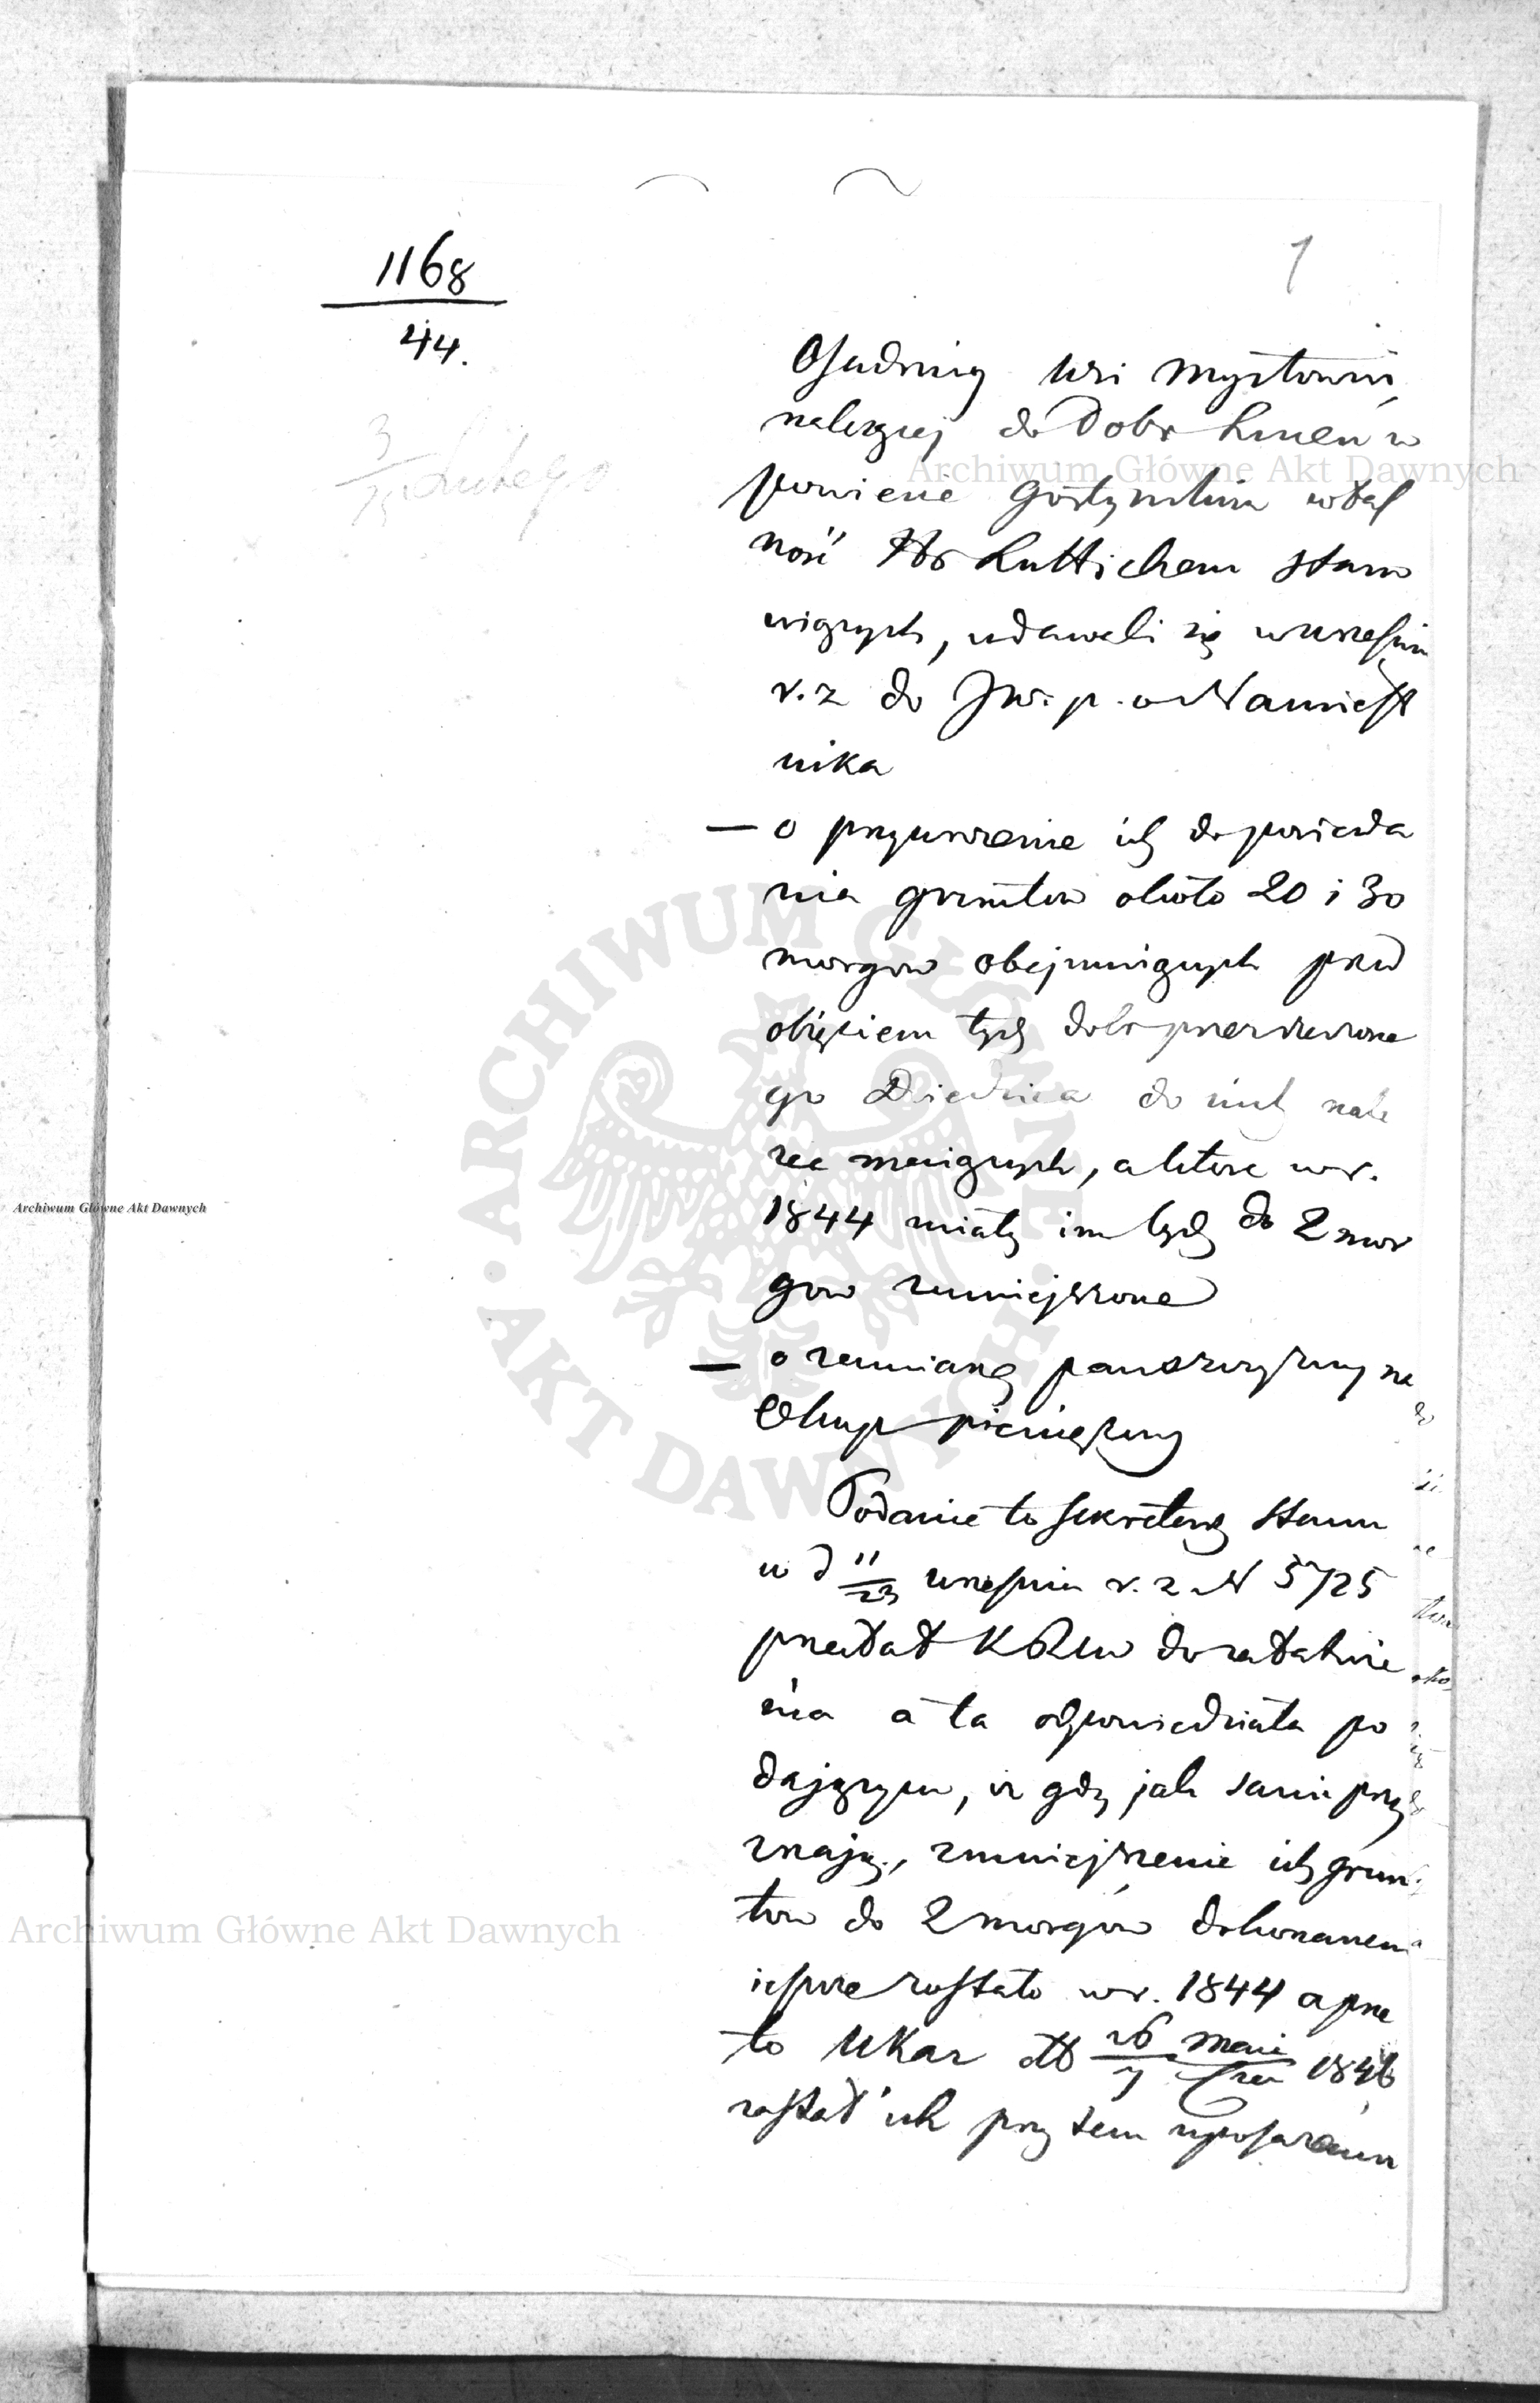 1168
44.
1
3
15 Lutego
Osadnicy wsi Myztowni,
należącej do Dobr Lucen w
powiecie Gostynskim wład
ność Hr Luttichem stano
wiących, udawali się wwrześniu
r. z do JW. p. o Namiest
nika
— o przywrócenie ich do posiada
nia gruntow około 20 i 30
morgow obejmuiących przed
obięciem tych dobr przez teraźnie
go Dziedzica do nich nale
żeć maiących, a które w r.
1844 miały im być do 2 mor
gow zmniejszone
— o zamianę pańszczyzny na
Okup pieniężny
Podanie to Sekretarz Stanu
w d 11/23 września r. z N 5725
przesłał KRSW do załatwie
nia a ta odpowiedziała po
dającym, iż gdy jak sami przy
znają, zmniejszenie ich grun
tow do 2 morgów dokonanem
ieszcze zostało w r. 1844 a prze
to Ukaz z d 26 Maia/7 Czer 1846
zastał ich przy tem uposażeniu
Archiwum Główne Akt Dawnych
Archiwum Główne Akt Dawnych
Archiwum Główne Akt Dawnych
ARCHIWUM GŁÓWNE · AKT DAWNYCH ·